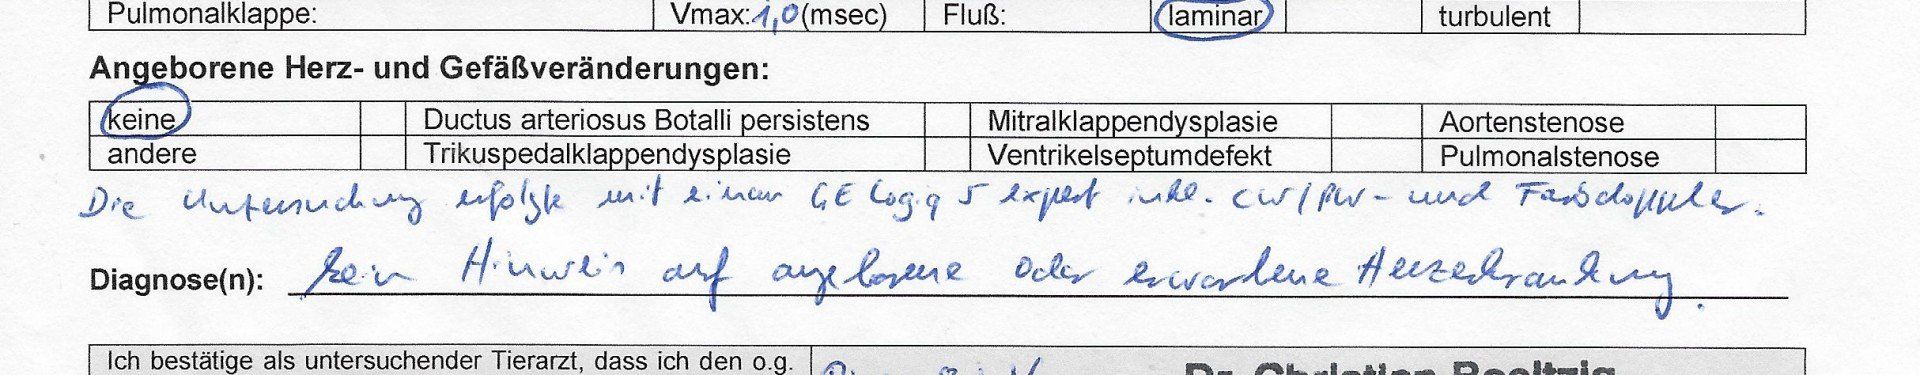 Pulmonalklappe: Vmax: 1,0 (msec) Fluß: laminar turbulent
Angeborene Herz- und Gefäßveränderungen:
keine Ductus arteriosus Botalli persistens Mitralklappendysplasie Aortenstenose
andere Trikuspedalklappendysplasie Ventrikelseptumdefekt Pulmonalstenose
Die Untersuchung erfolgte mit einem GE Logiq 5 expert inkl. CW/PW- und Farbdoppler.
Diagnose(n): kein Hinweis auf angeborene oder erworbene Herzerkrankung.
Ich bestätige als untersuchender Tierarzt, dass ich den o.g. Dr. Christian